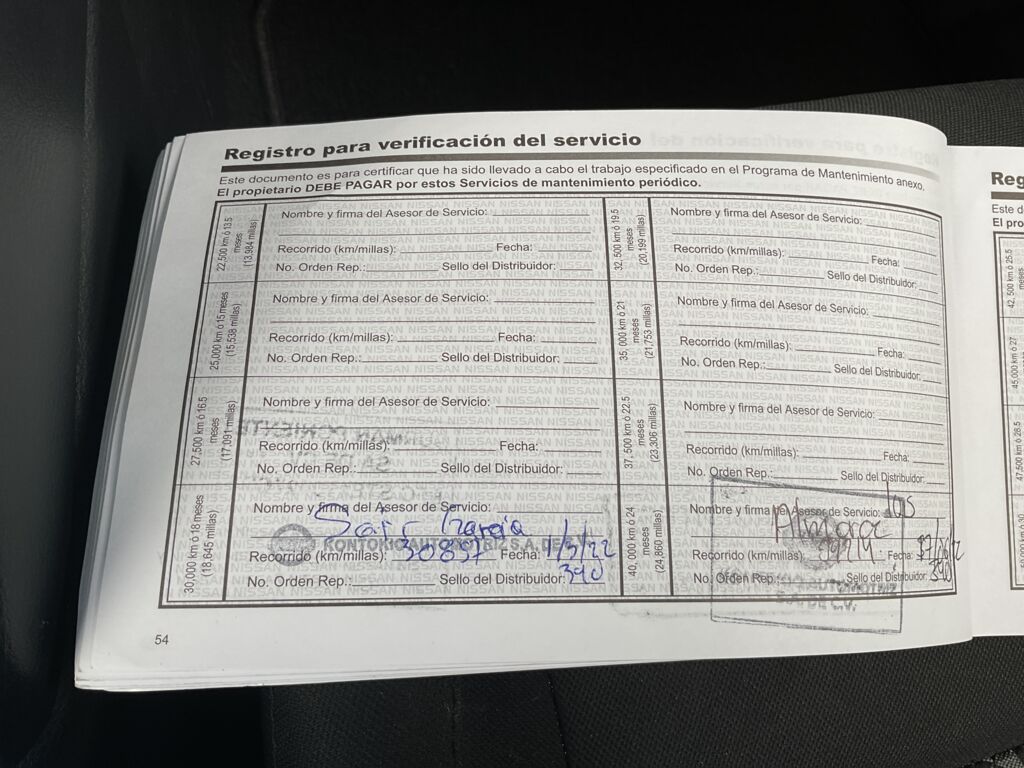 Registro para verificación del servicio
Este documento es para certificar que ha sido llevado a cabo el trabajo especificado en el Programa de Mantenimiento anexo.
El propietario DEBE PAGAR por estos Servicios de mantenimiento periódico.
22,500 km ó 13.5 meses (13,984 millas)
Nombre y firma del Asesor de Servicio:
Recorrido (km/millas): Fecha:
No. Orden Rep.: Sello del Distribuidor:
25,000 km ó 15 meses (15,538 millas)
Nombre y firma del Asesor de Servicio:
Recorrido (km/millas): Fecha:
No. Orden Rep.: Sello del Distribuidor:
27,500 km ó 16.5 meses (17,091 millas)
Nombre y firma del Asesor de Servicio:
Recorrido (km/millas): Fecha:
No. Orden Rep.: Sello del Distribuidor:
30,000 km ó 18 meses (18,645 millas)
Nombre y firma del Asesor de Servicio:
García
Recorrido (km/millas): 30897 Fecha: 1/3/22
No. Orden Rep.: Sello del Distribuidor: 390
32,500 km ó 19.5 meses (20,199 millas)
Nombre y firma del Asesor de Servicio:
Recorrido (km/millas): Fecha:
No. Orden Rep.: Sello del Distribuidor:
35,000 km ó 21 meses (21,753 millas)
Nombre y firma del Asesor de Servicio:
Recorrido (km/millas): Fecha:
No. Orden Rep.: Sello del Distribuidor:
37,500 km ó 22.5 meses (23,306 millas)
Nombre y firma del Asesor de Servicio:
Recorrido (km/millas): Fecha:
No. Orden Rep.: Sello del Distribuidor:
40,000 km ó 24 meses (24,860 millas)
Nombre y firma del Asesor de Servicio:
Recorrido (km/millas): Fecha:
No. Orden Rep.: Sello del Distribuidor: 390
54
Reg
Este d
El pro